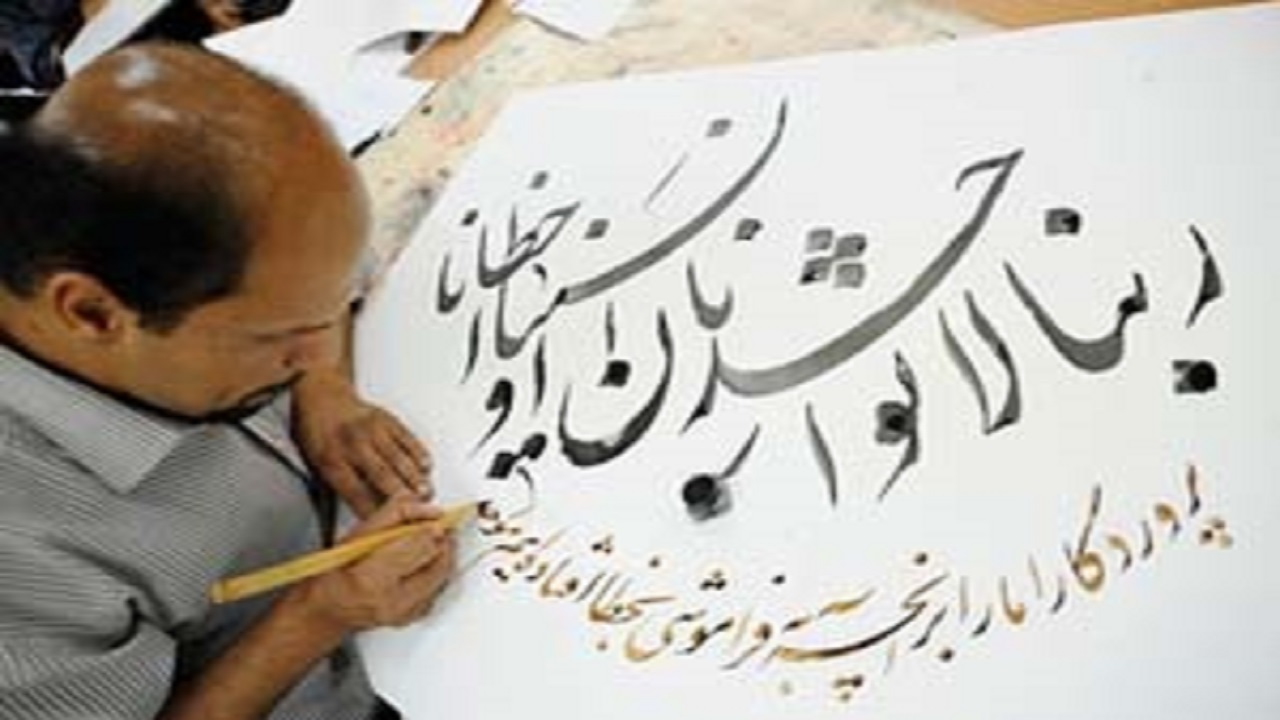 ربنا لا تواخذنا ان نسینا او اخطانا
پروردگارا ما را بر انچه به فراموشی بخطا افتاده ایم